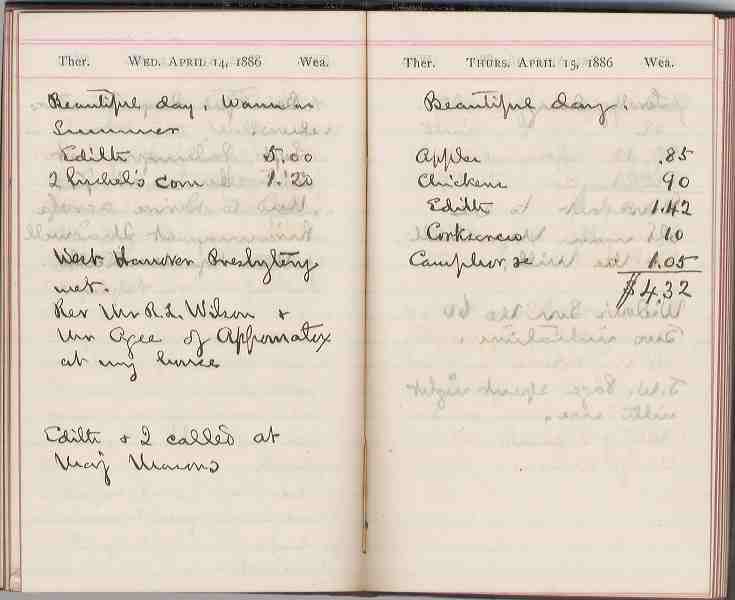 Ther. WED. APRIL 14, 1886 Wea.
Beautiful day, Warm as
Summer
Edith 5.00
2 bushels corn 1.20
West Hanover Presbytery
met.
Rev Mr R. L. Wilson &
Mr Agee of Appomatox
at my house
Edith & I called at
Maj Masons
Ther. THURS. APRIL 15, 1886 Wea.
Beautiful day.
Apples .85
Chickens 90
Edith 1.42
Corkscrew 10
Camphor &c 1.05
$4.32